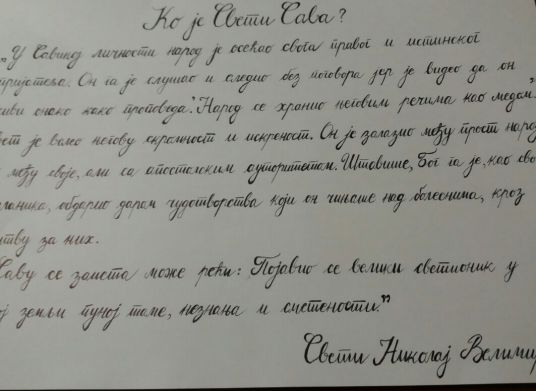 Ко је Свети Сава?
„У Савиној личности народ је осећао свога правог и истинског
пријатеља. Он га је слушао и следио без поговора јер је видео да он
живи онако како проповеда". Народ се хранио његовим речима као медом.
је волео његову скромност и искреност. Он је залазио међу прост народ
међу своје, али са апостолским ауторитетом. Штавише, Бог га је, као
обдарио даром чудотворства који он чињаше над болеснима, кроз
за њих.
Саву се заиста може рећи: Појавио се велики светионик у
земљи пуној таме, незнања и сметености."
Свети Николај Велимир